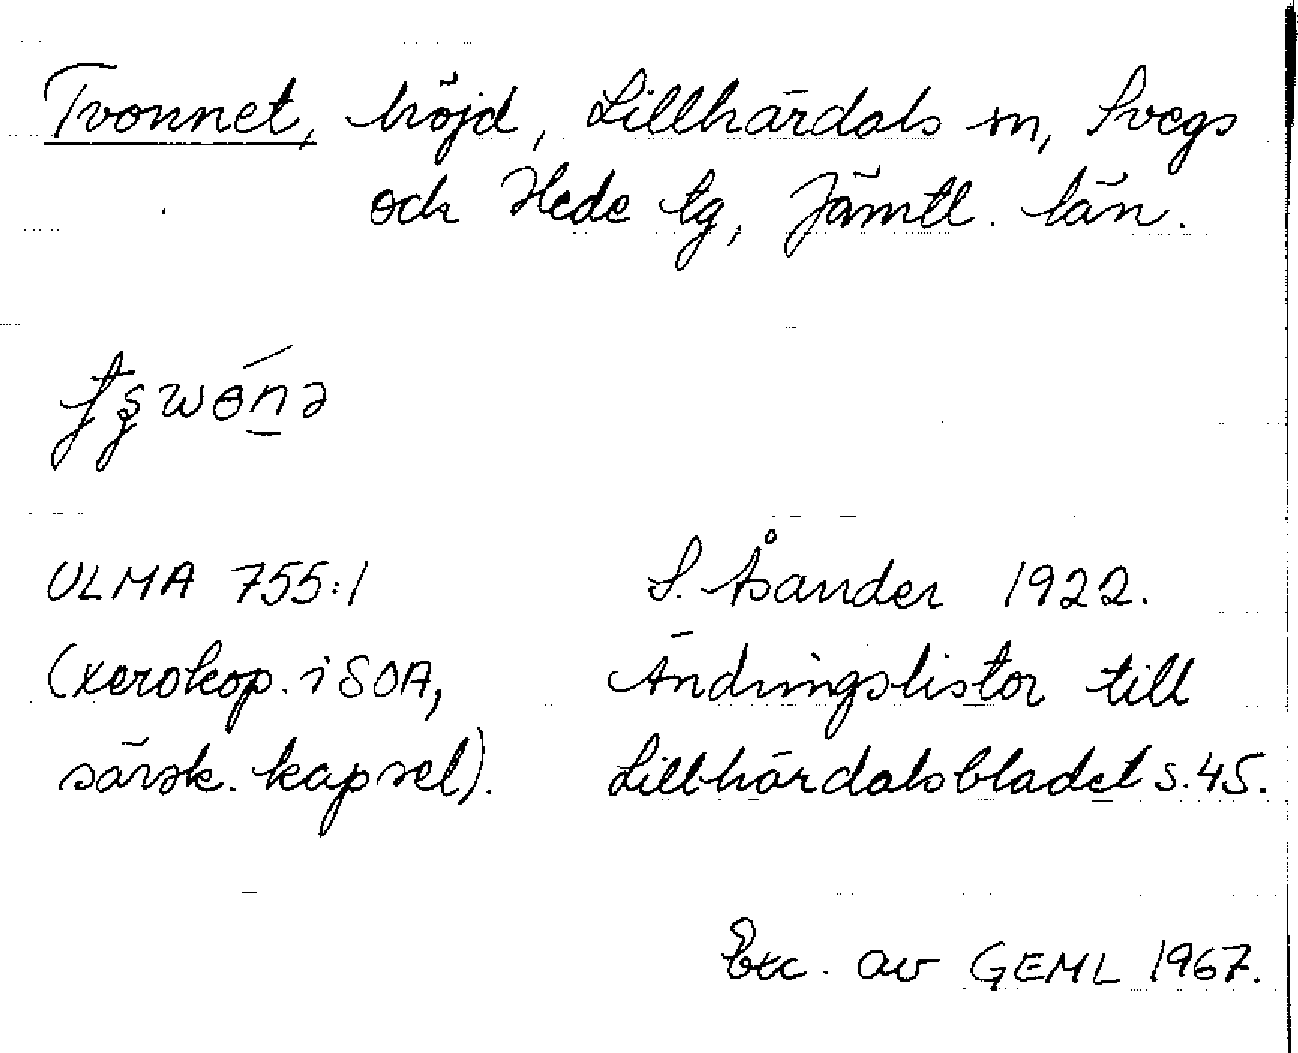 Tvonnet, höjd, Lillhärdals sn, Svegs
och Hede tg, Jämtl. län.
ULMA 755:1
S. Åsander 1922.
(xerokop. i SOA,
Ändringslistor till
särsk. kapsel).
Lillhärdalsbladet s. 45.
Exc. av GEML 1967.